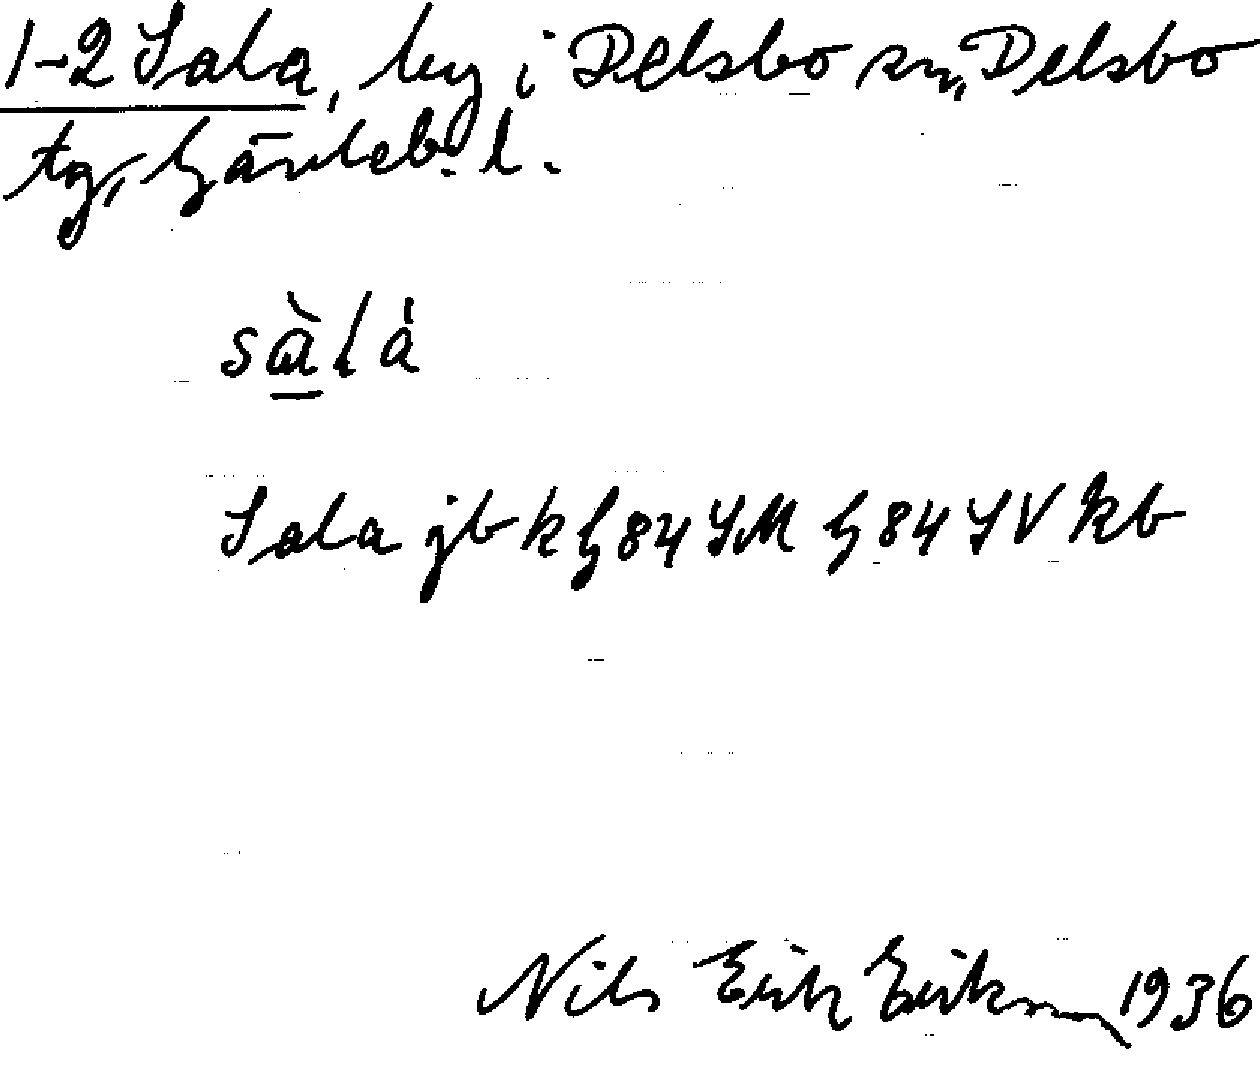 1-2 Sala, by i Delsbo sn, Delsbo
tg, Gävleb. l.
sàlà
Sala jb k h 84 SM h 84 SV kb
Nils Erik Eriksson 1936